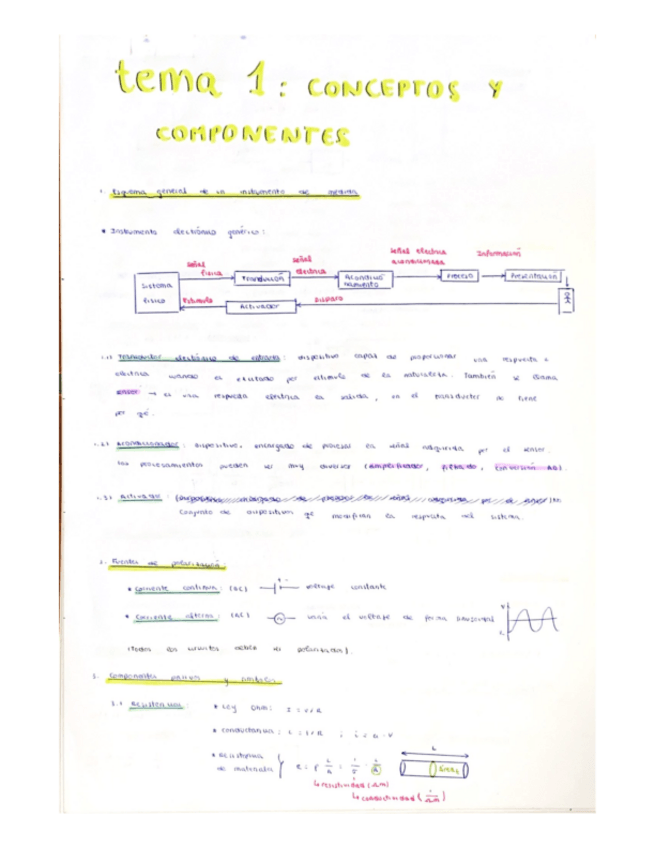 tema 1: CONCEPTOS Y
COMPONENTES
1. Esquema general de un instrumento de medida
• Instrumento electrónico genérico:
señal física
señal eléctrica
señal eléctrica acondicionada
Información
Sistema físico
Transducción
Acondicionamiento
Proceso
Presentación
Estímulo
Activador
Disparo
1.1) Transductor electrónico de entrada: dispositivo capaz de proporcionar una respuesta
eléctrica cuando es excitado por estímulo de la naturaleza. También se llama
sensor → si una respuesta eléctrica es salida, en el transductor no tiene
por qué.
1.2) Acondicionador: dispositivo, encargado de procesar la señal adquirida por el sensor.
Los procesamientos pueden ser muy diversos (amplificador, filtrado, conversión AD).
1.3) Activador:
Conjunto de dispositivos que modifican la respuesta del sistema.
2. Fuentes de polarización:
• Corriente continua: (DC) voltaje constante
• Corriente alterna: (AC) varía el voltaje de forma sinusoidal
(todos los circuitos deben ser polarizados).
3. Componentes pasivos y símbolos
3.1 Resistencias: • Ley Ohm: I = V/R
• conductancia: G = 1/R ; I = G · V
• Resistencia de materiales
L
Área
↳ resistividad (Ω m)
↳ conductividad (1/Ω m)